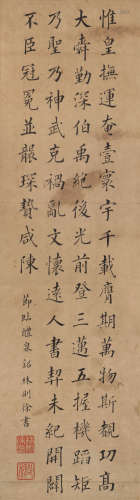 惟皇撫運奄壹寰宇千載膺期萬物斯覩功高
大舜勤深伯禹絶後光前登三邁五握機蹈矩
乃聖乃神武克禍亂文懷遠人書契未紀開闢
不臣冠冕並襲琛贄咸陳
節臨醴泉銘林則徐書